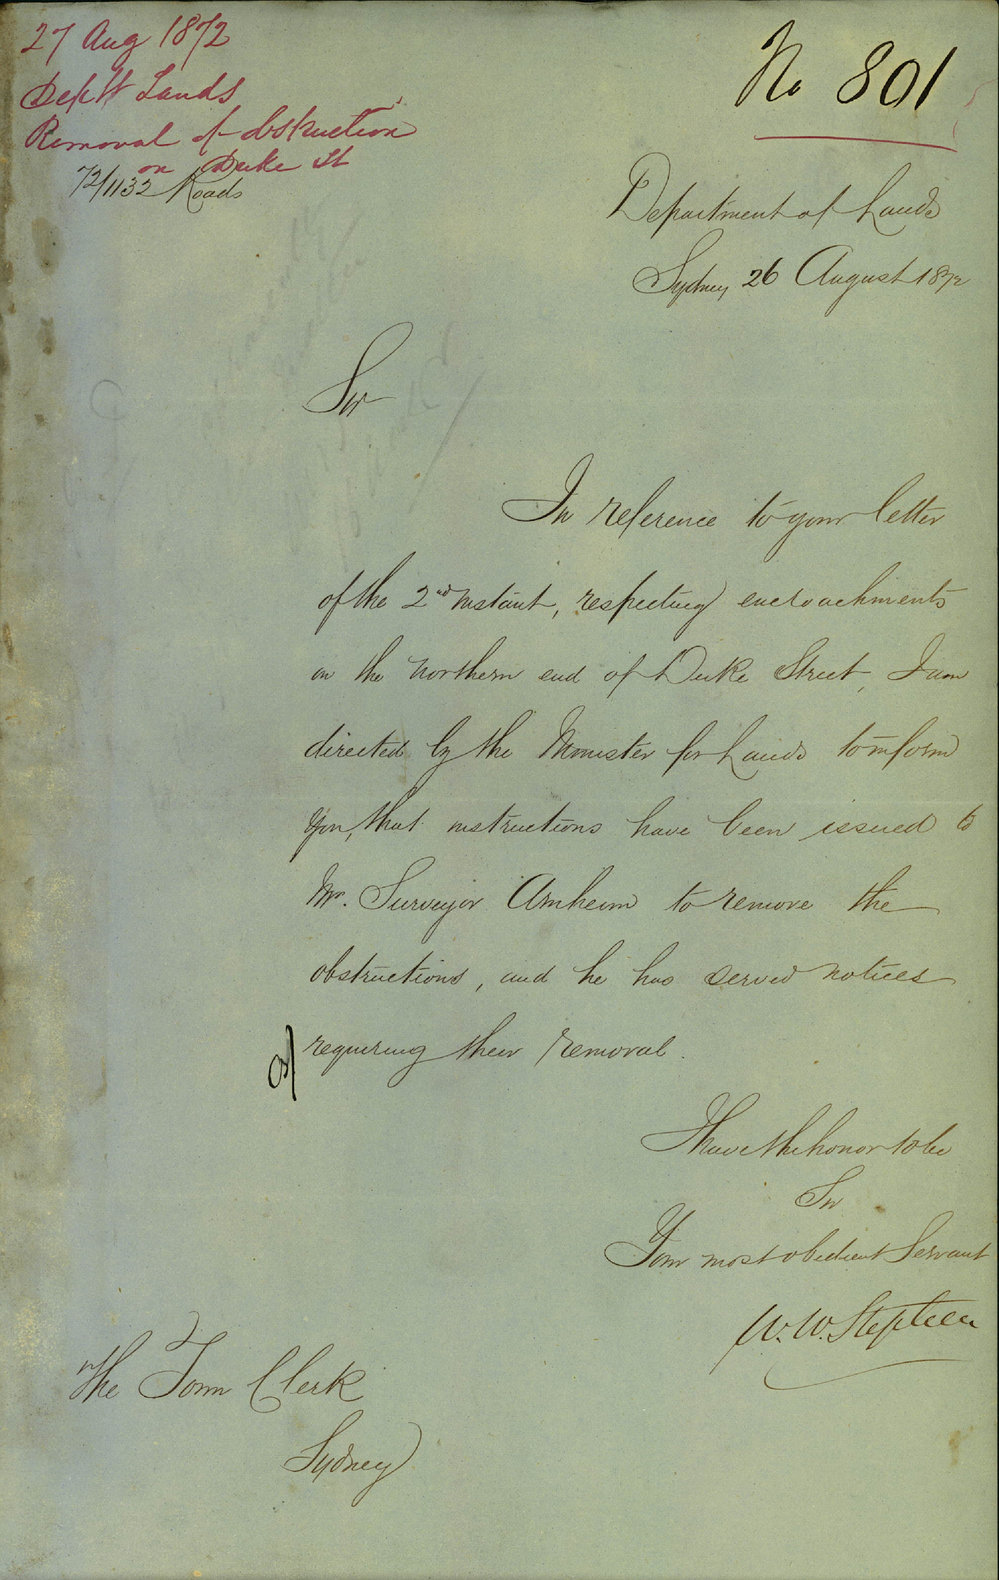 27 Aug 1872
Dept Lands
Removal of obstruction
on Duke St
72/1132 Roads
No 801
Department of Lands
Sydney 26 August 1872
Sir
In reference to your letter
of the 2nd instant, respecting encroachments
on the northern end of Duke Street, I am
directed by the Minister for Lands to inform
you, that instructions have been issued to
Mr. Surveyor Arnheim to remove the
obstructions, and he has served notices
requiring their removal.
I have the honor to be
Sir
Your most obedient Servant
W. W. Stephen
The Town Clerk
Sydney